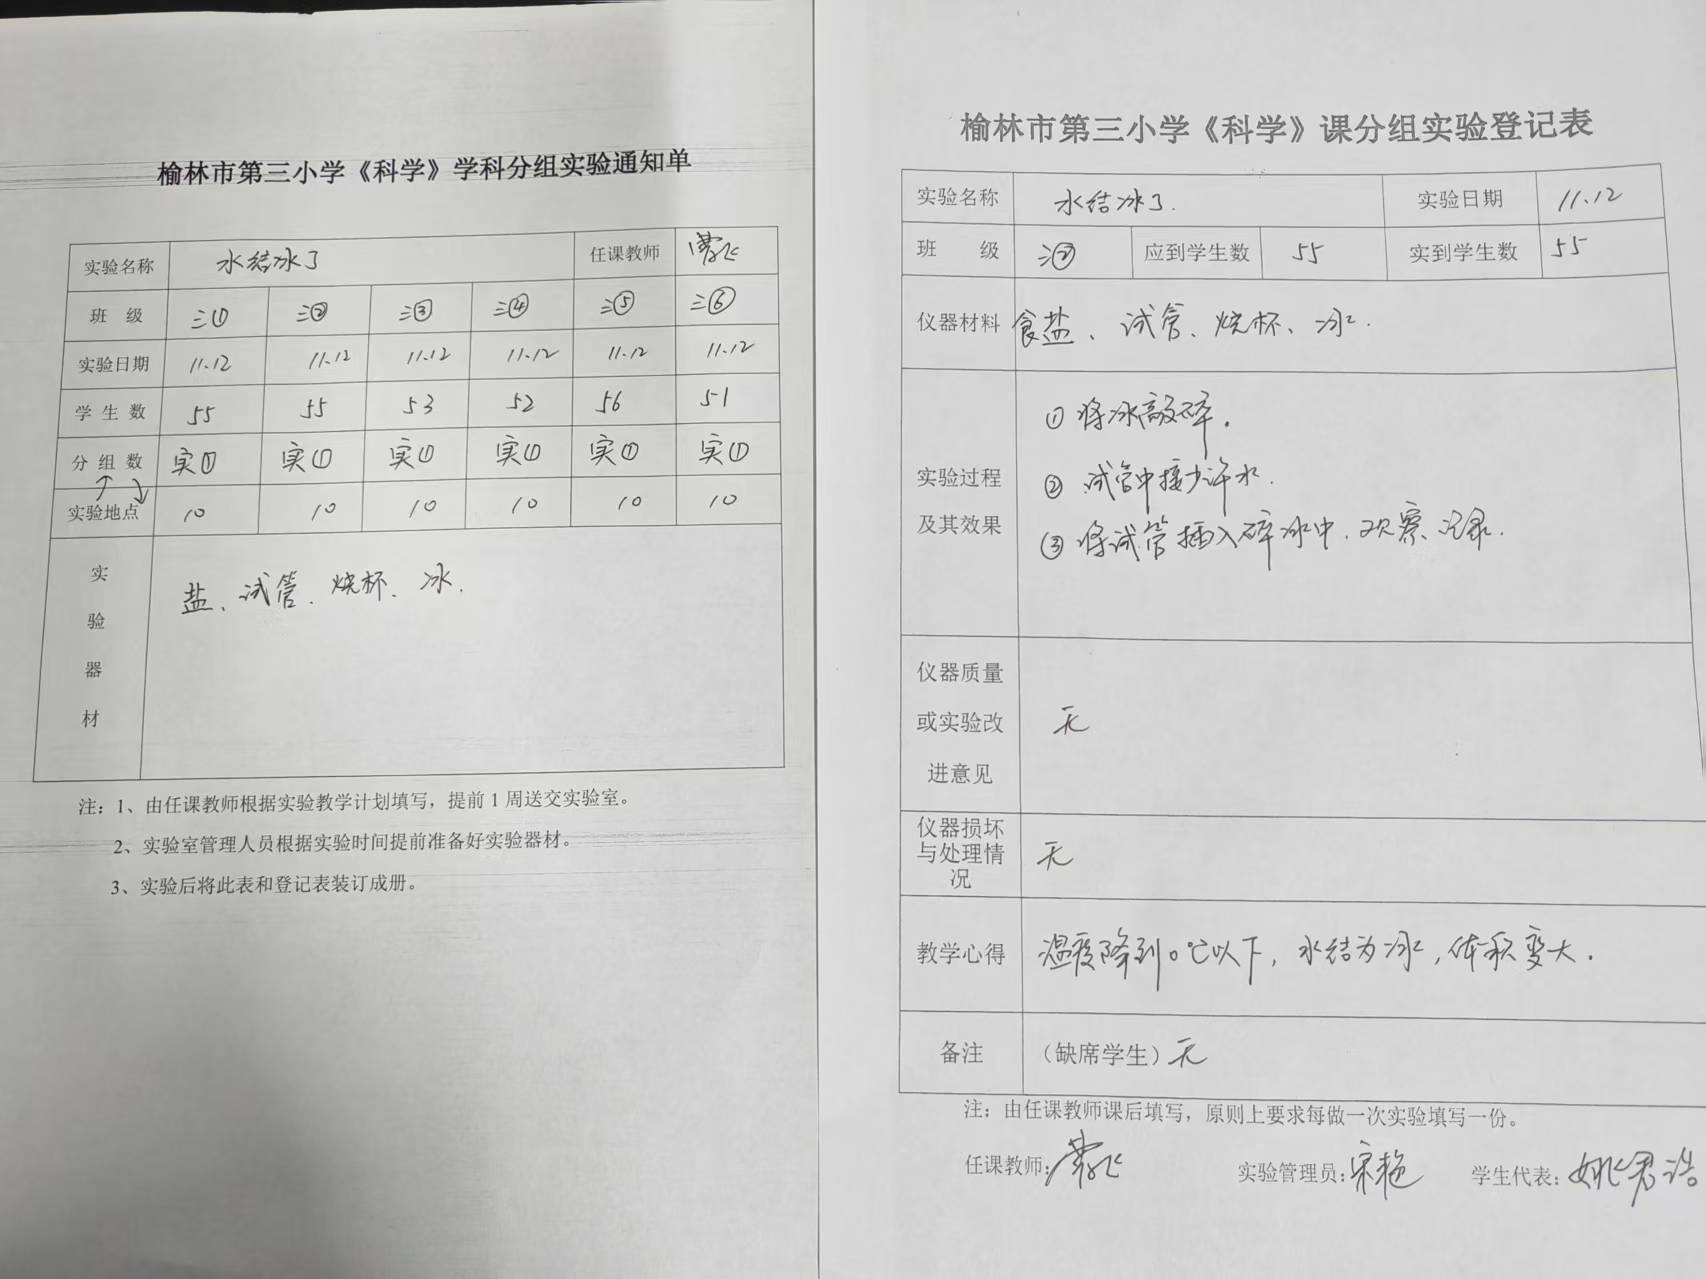 榆林市第三小学《科学》学科分组实验通知单
实验名称 水结冰了 任课教师
班 级 三① 三② 三③ 三④ 三⑤ 三⑥
实验日期 11.12 11.12 11.12 11.12 11.12 11.12
学 生 数 55 55 53 52 56 51
分 组 数 实① 实① 实① 实① 实① 实①
实验地点 10 10 10 10 10 10
实
验
器
材
盐、试管、烧杯、冰.
注：1、由任课教师根据实验教学计划填写，提前1周送交实验室。
2、实验室管理人员根据实验时间提前准备好实验器材。
3、实验后将此表和登记表装订成册。
榆林市第三小学《科学》课分组实验登记表
实验名称 水结冰了. 实验日期 11.12
班 级 三② 应到学生数 55 实到学生数 55
仪器材料 食盐、试管、烧杯、冰.
实验过程
及其效果
① 将冰敲碎.
② 试管中接少许水.
③ 将试管插入碎冰中.观察、记录.
仪器质量
或实验改
进意见
无
仪器损坏
与处理情
况
无
教学心得 温度降到0℃以下，水结为冰，体积变大.
备注 （缺席学生）无
注：由任课教师课后填写，原则上要求每做一次实验填写一份。
任课教师: 实验管理员:宋艳 学生代表:姚君浩